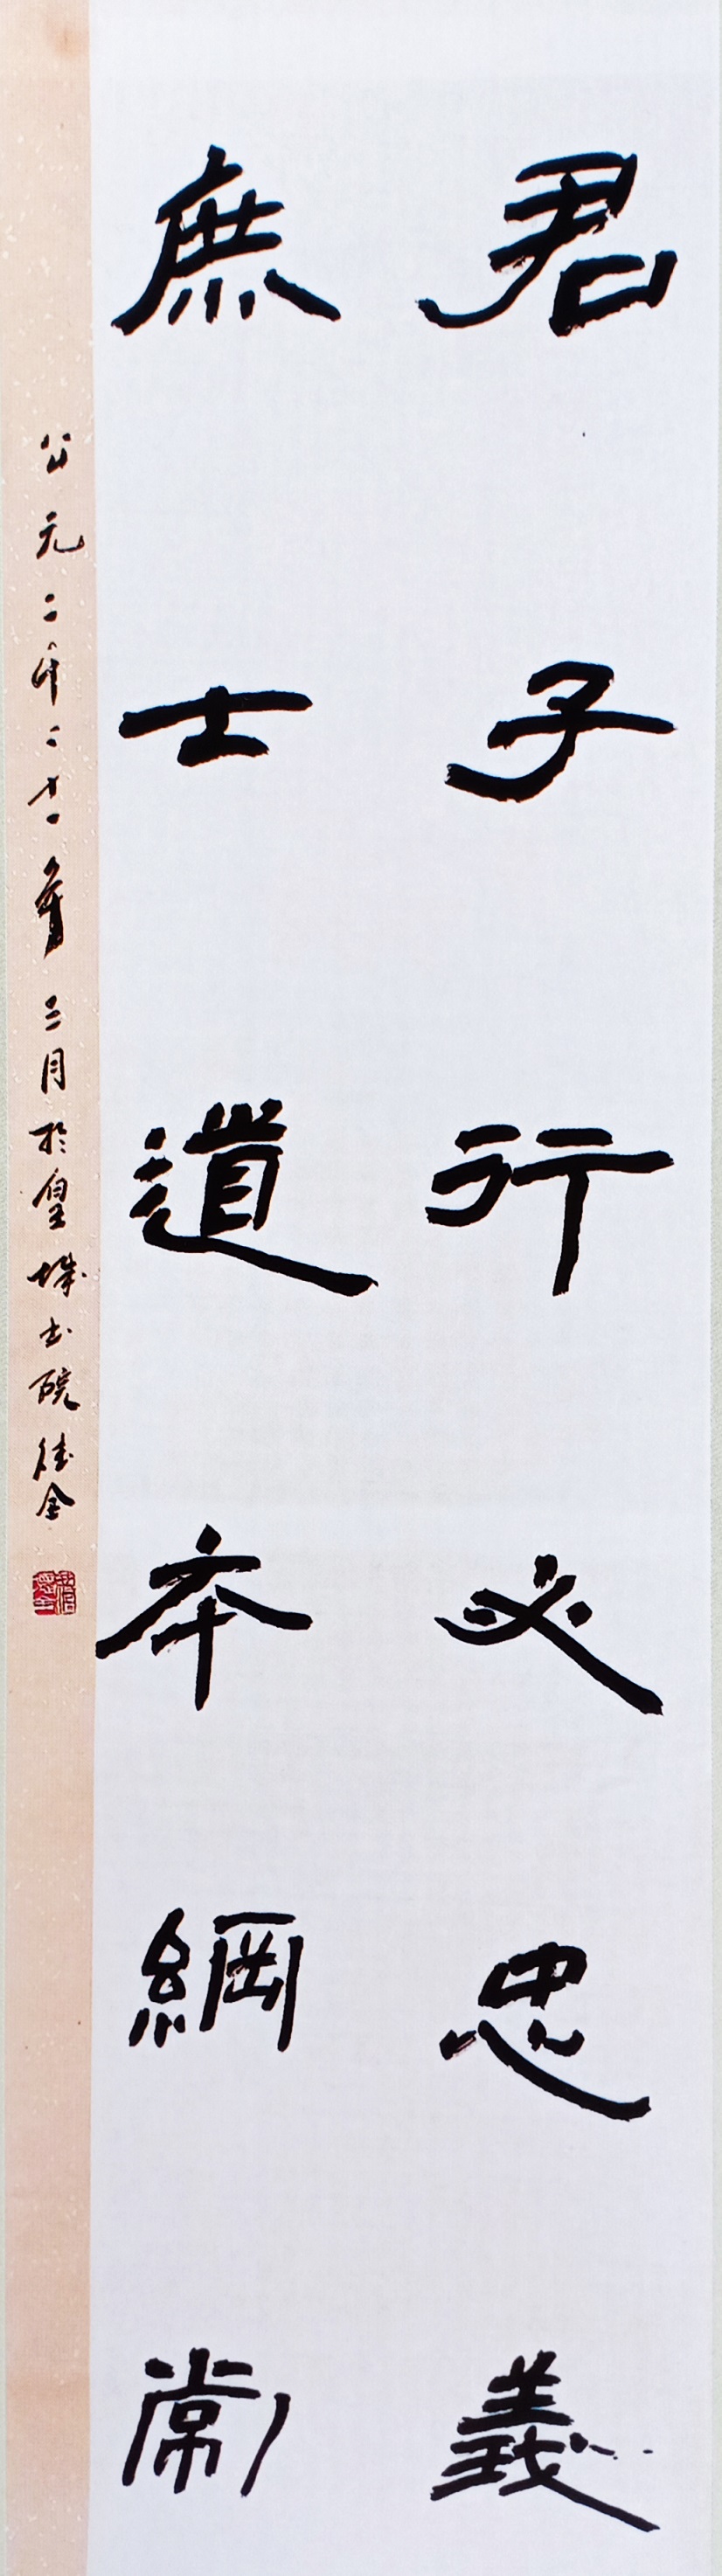 君子行必忠義
庶士道本綱常
公元二千二十一年三月於皇城書院德全